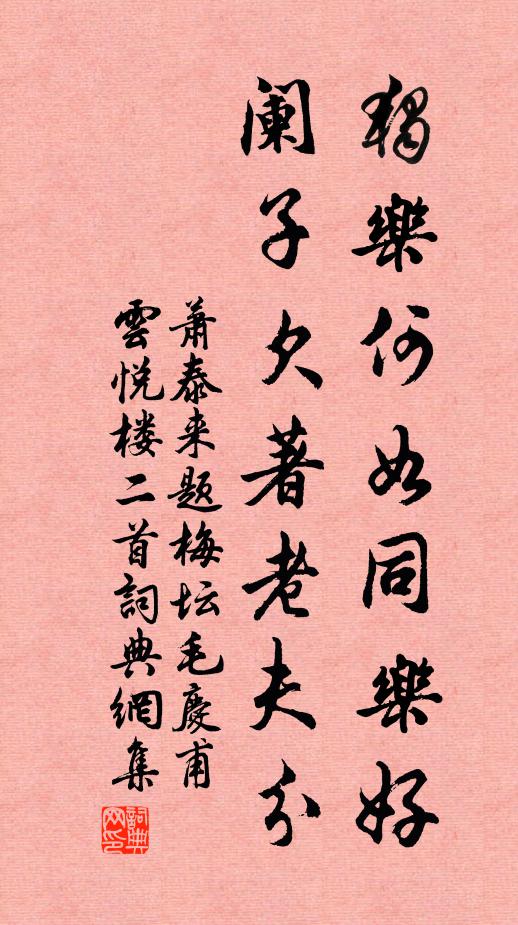 獨樂何如同樂好
阑子欠著老夫分
萧泰来题梅坛毛慶甫
雲悦楼二首詞典網集
詞典
网印